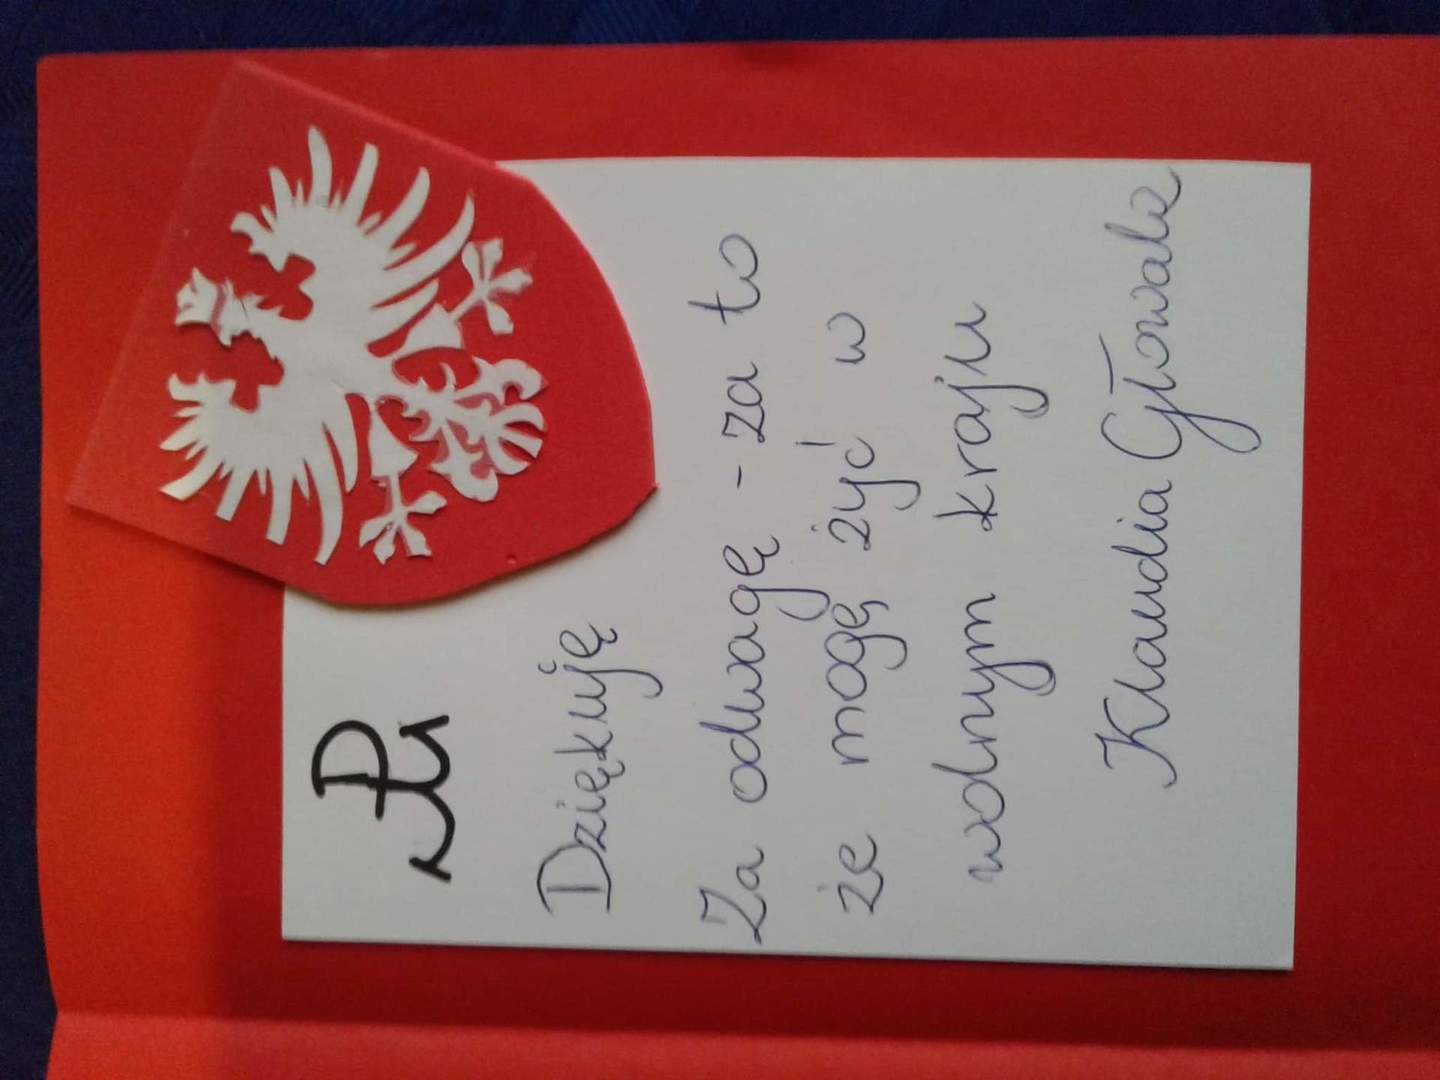 Dziękuję
Za odwagę - za to
że mogę żyć w
wolnym kraju
Klaudia Głowala